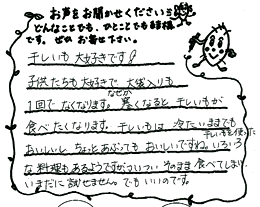 お声をお聞かせください!!
どんなことでも、ひとことでも結構
です。ぜひ お寄せ下さい。
干しいも 大好きです!
子供たちも 大好きで 大袋入りも
1回で なくなります。なぜか 寒くなると 干しいもが
食べたくなります。干しいもは 冷たいままでも
おいしいし ちょっとあぶっても おいしいですね。干しいもを使った いろいろ
な 料理も あるようですが ついつい そのまま 食べてしまい、
いまだに 試せません。でも いいのです。